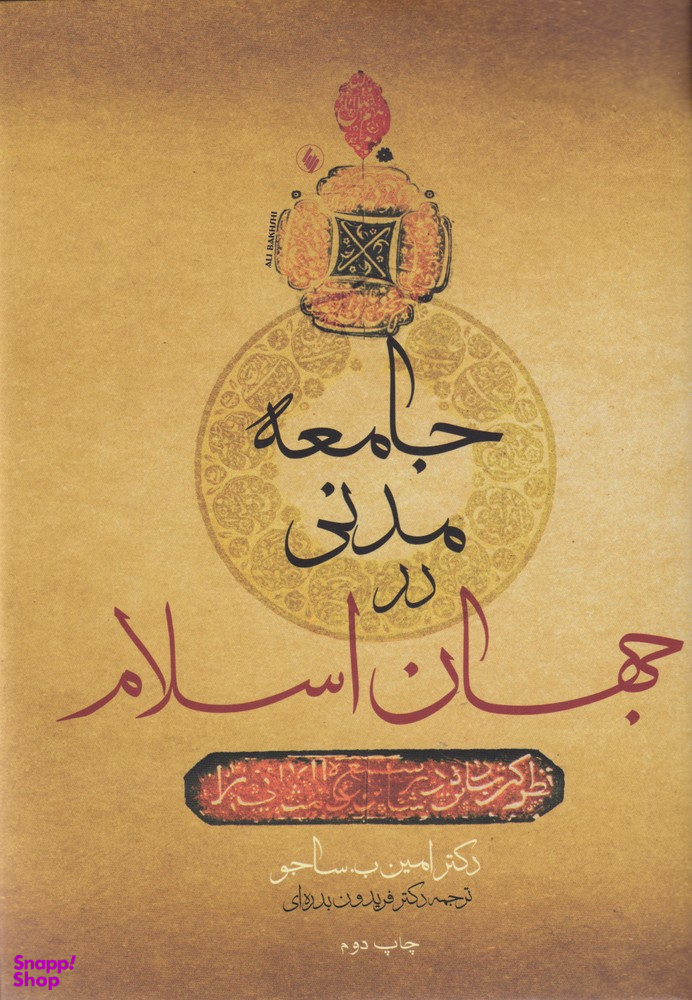 ALI BAKHSHI
جامعه
مدنی
در
جهان اسلام
دکتر امین ب. ساجو
ترجمه دکتر فریدون بدره‌ای
چاپ دوم
Snapp!
Shop